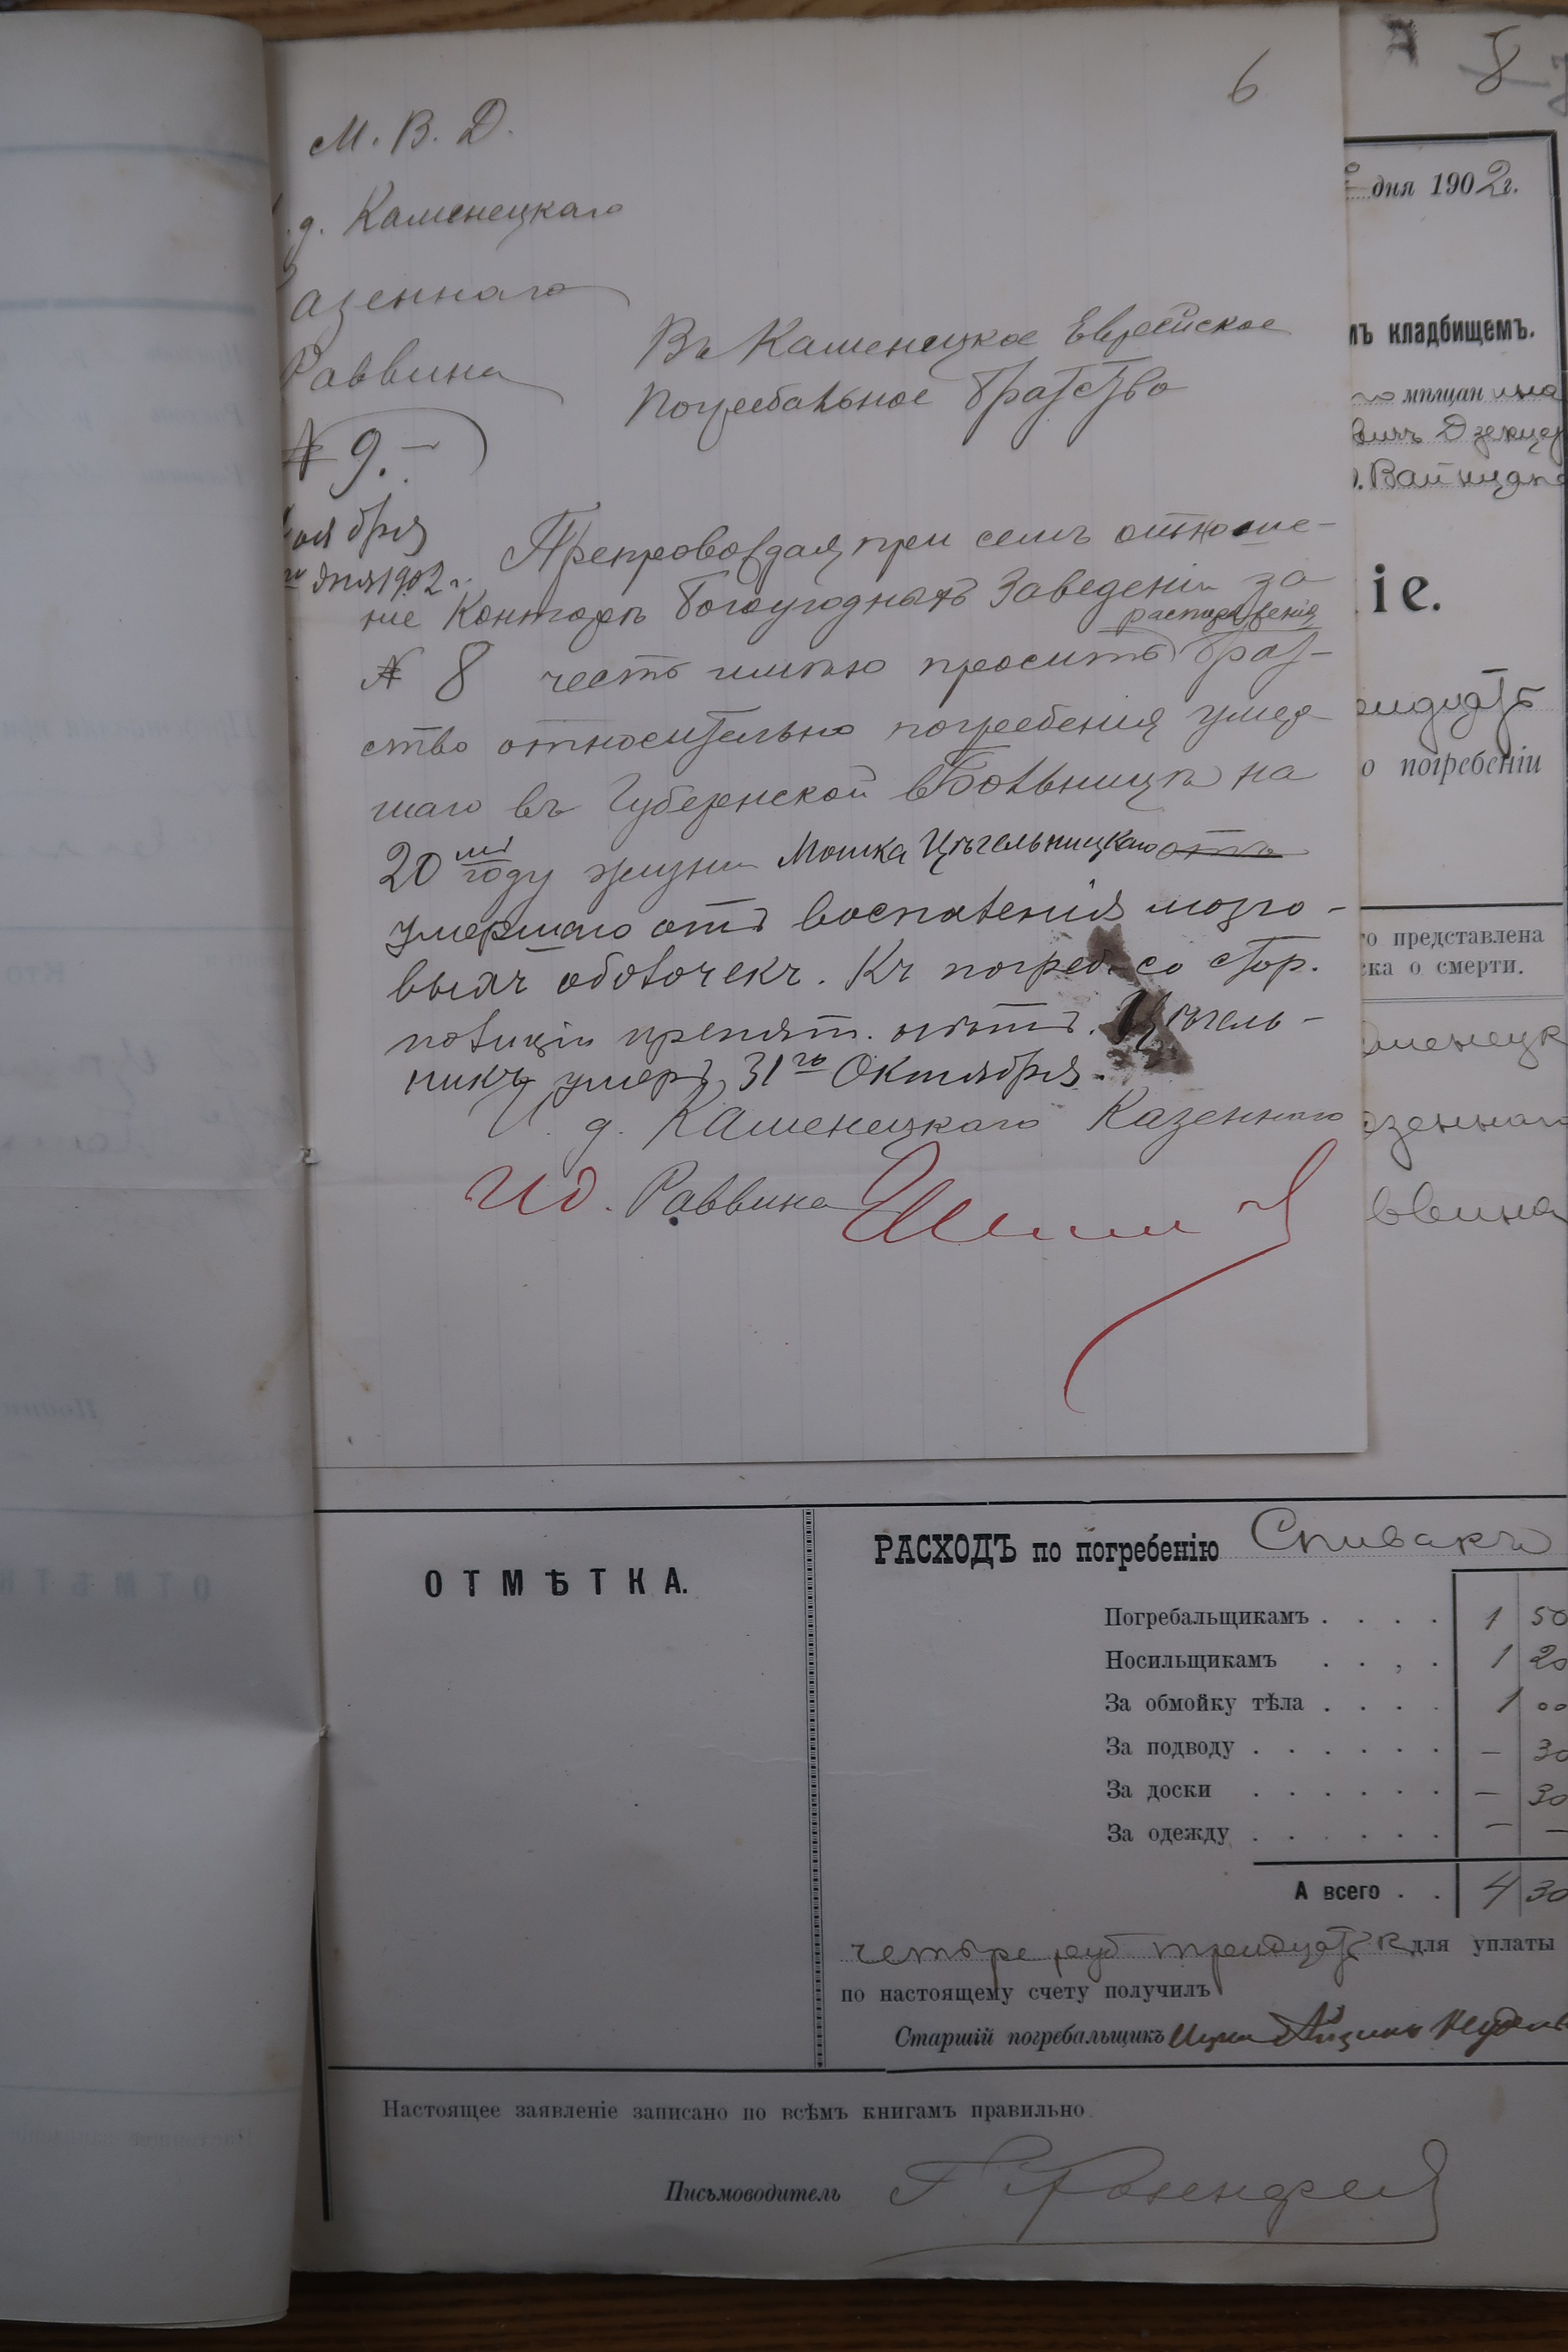 6
М. В. Д.
.д. Каменецкаго
азеннаго
Раввина
№ 9.–
Въ Каменецкое Еврейское
Погребальное братство
оября
го дня 1902 г.
Препровождая при семъ отноше-
ние Конторѣ Богоугодныхъ Заведеній за
распоряженія
№ 8 честь имѣю просить брат-
ство относительно погребенія умер
шаго въ Губернской Больницѣ на
20мъ году жизни Мошка Цѣгельницкаго отъ
умершаго отъ воспаленія мозго-
выхъ оболочекъ. Къ погреб. со стор.
полиціи препят. нѣтъ. Цѣгель-
никъ умеръ 31го Октября.
И. д. Каменецкаго Казеннаго
Ид. Раввина
8
дня 1902г.
мъ кладбищемъ.
го мѣщанина
вичъ
іе.
ридцать
о погребеніи
го представлена
ска о смерти.
аменецк
азеннаго
ввина
ОТМѢТКА.
РАСХОДЪ по погребенію Спивакъ
Погребальщикамъ . . . . 1 50
Носильщикамъ . . , . 1 20
За обмойку тѣла . . . . 1 00
За подводу . . . . . . — 30
За доски . . . . . . — 30
За одежду . . . . . . — —
А всего . . 4 30
четыре руб тридцать к для уплаты
по настоящему счету получилъ
Старшій погребальщикъ
Настоящее заявленіе записано по всѣмъ книгамъ правильно
Письмоводитель Г. Розенфелд